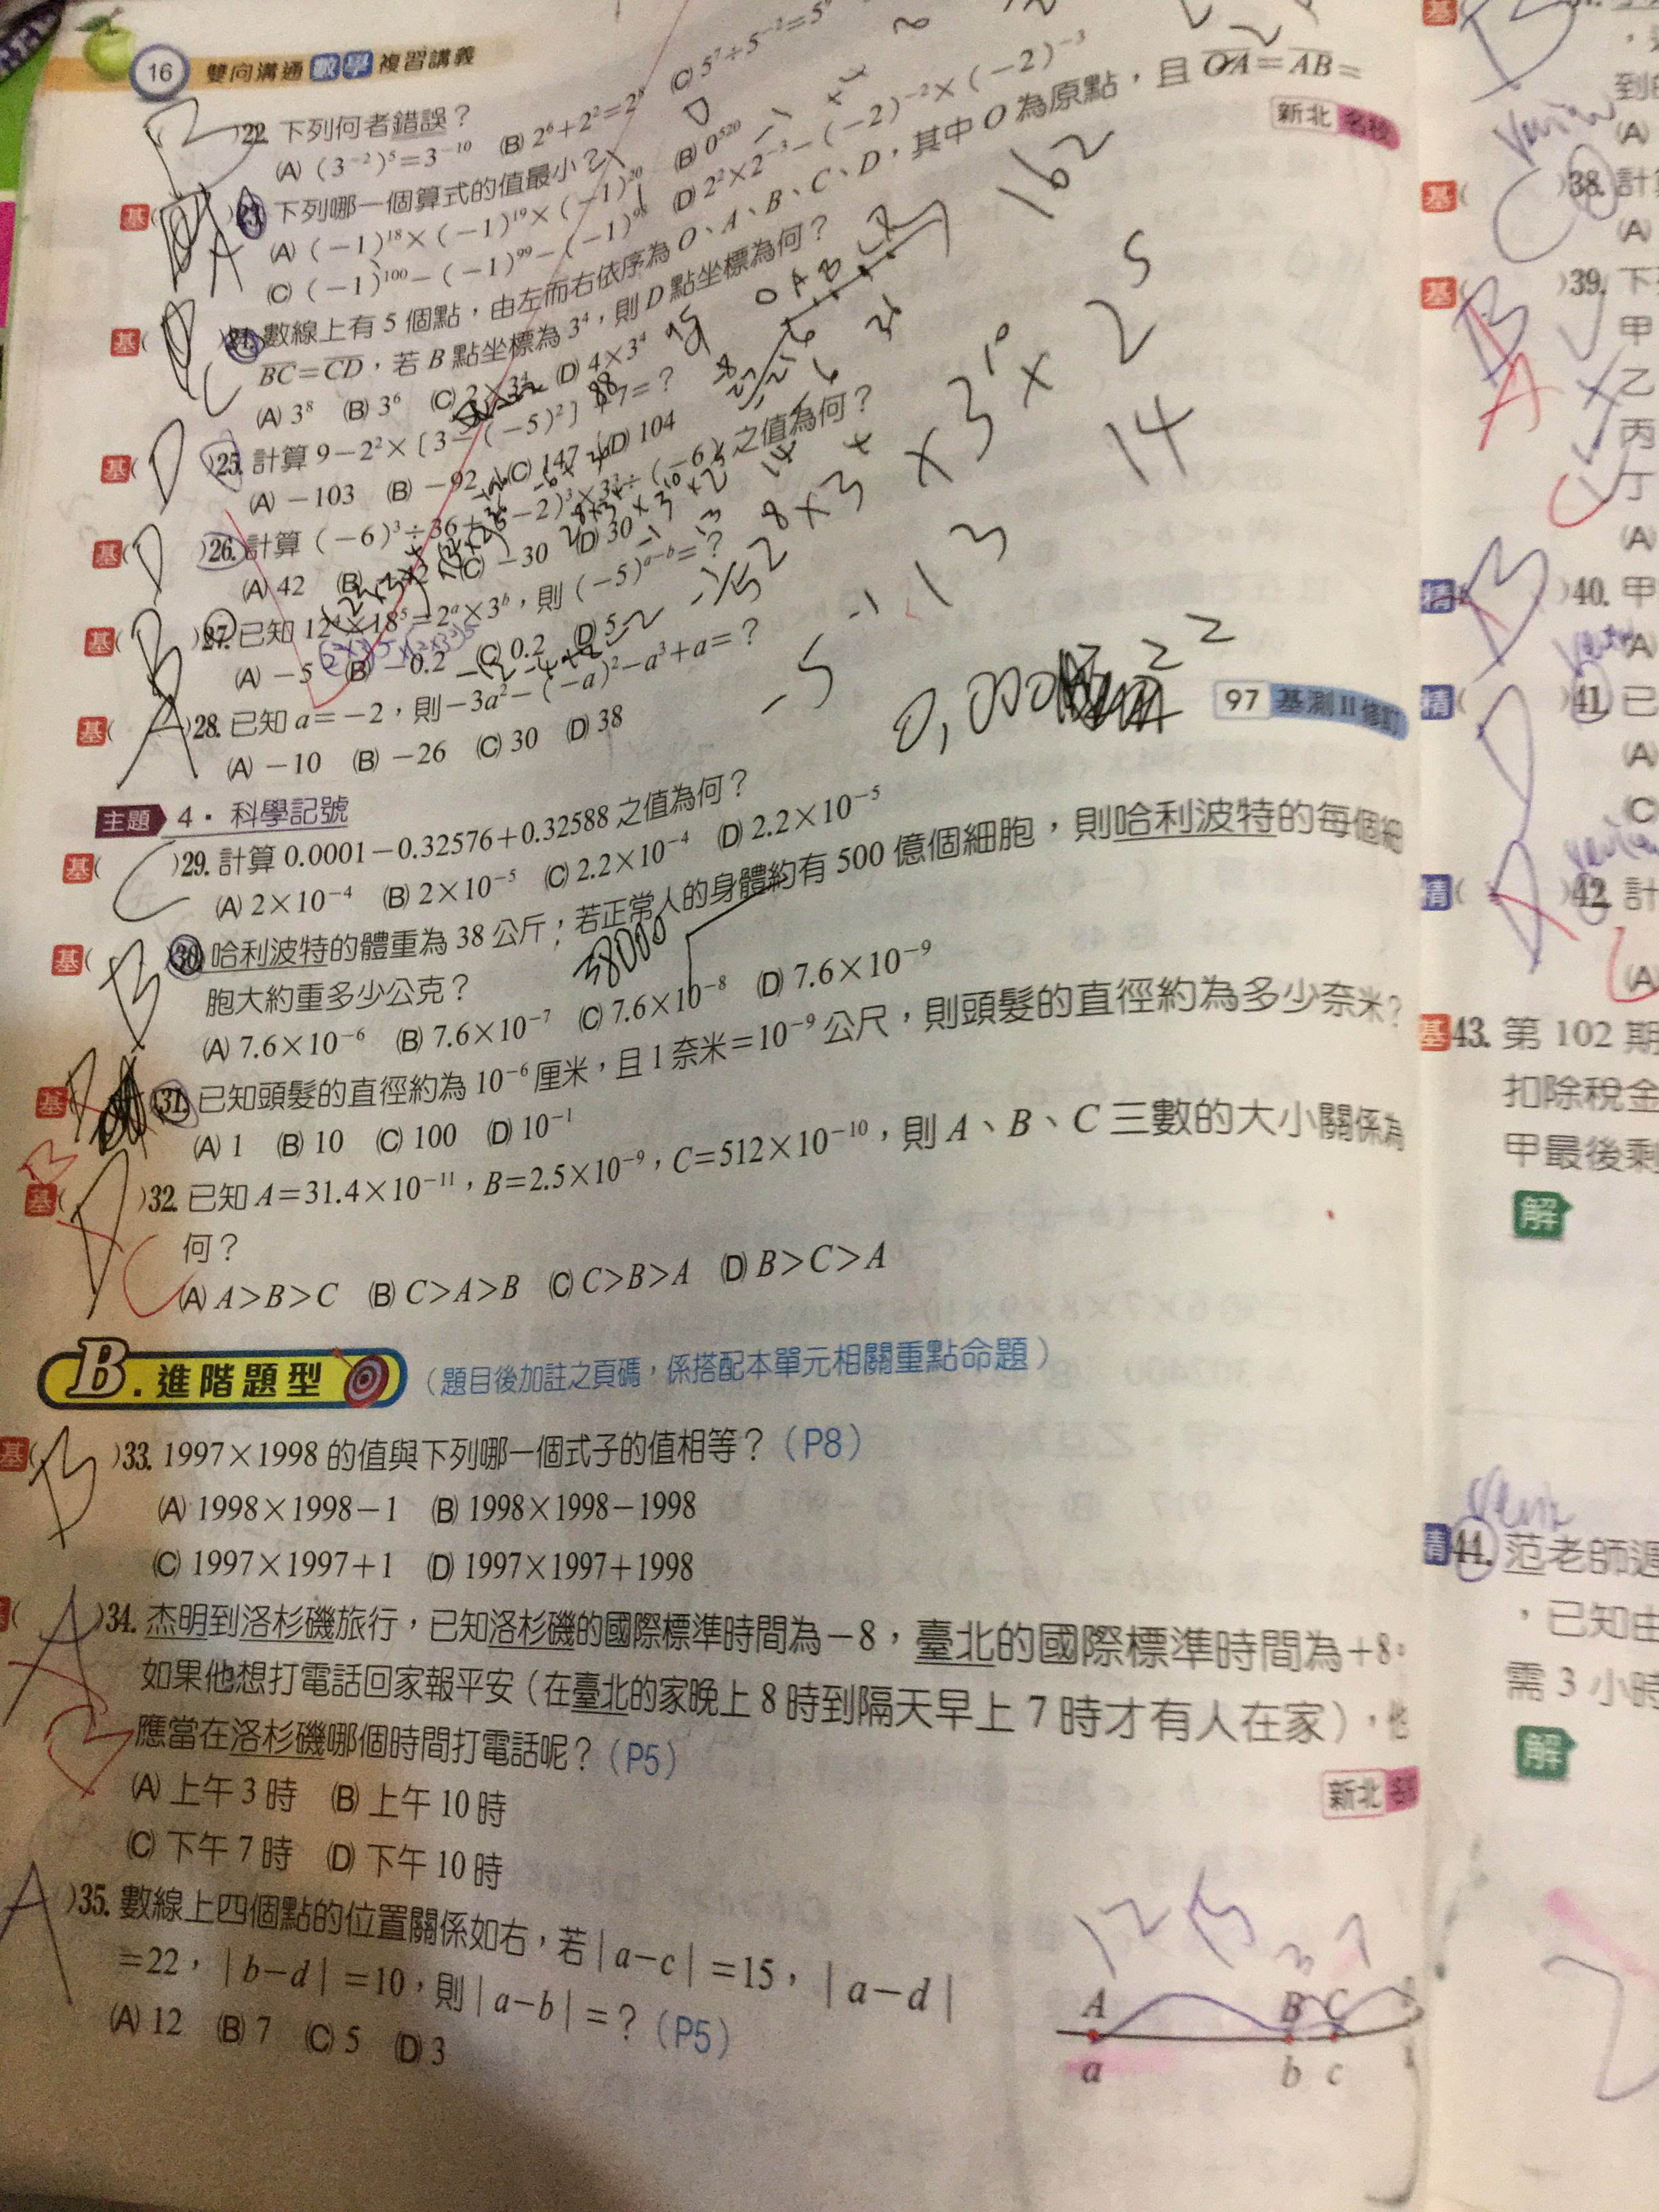 16 雙向溝通數學複習講義
)22. 下列何者錯誤?
(A) (3⁻²)⁵=3⁻¹⁰ (B) 2⁶+2²=2⁸ (C) 5⁷÷5⁻²=5⁹
基( )23. 下列哪一個算式的值最小?
(A) (-1)¹⁸×(-1)¹⁹×(-1)²⁰ (B) 0⁵²⁰
(C) (-1)¹⁰⁰-(-1)⁹⁹-(-1)⁹⁸ (D) 2²×2⁻³-(-2)⁻²×(-2)⁻³
基( )24. 數線上有 5 個點,由左而右依序為 O、A、B、C、D,其中 O 為原點,且 OA=AB=
BC=CD,若 B 點坐標為 3⁴,則 D 點坐標為何?
新北 名校
(A) 3⁸ (B) 3⁶ (C) 2×3⁴ (D) 4×3⁴
基( D )25. 計算 9-2²×[3-(-5)²]+7=?
(A) -103 (B) -92 (C) 147 (D) 104
基( D )26. 計算 (-6)³÷36+ -2)³×3²÷(-6) 之值為何?
(A) 42 (C) -30 (D) 30
基( B )27. 已知 12⁴×18⁵=2ᵃ×3ᵇ,則 (-5)ᵃ⁻ᵇ=?
(A) -5 (B) -0.2 (C) 0.2 (D) 5
基( A )28. 已知 a=-2,則-3a²-(-a)²-a³+a=?
97 基測II修訂
(A) -10 (B) -26 (C) 30 (D) 38
主題 4.科學記號
基( C )29. 計算 0.0001-0.32576+0.32588 之值為何?
(A) 2×10⁻⁴ (B) 2×10⁻⁵ (C) 2.2×10⁻⁴ (D) 2.2×10⁻⁵
基( B )30. 哈利波特的體重為 38 公斤;若正常人的身體約有 500 億個細胞,則哈利波特的每個細
胞大約重多少公克?
38000
(A) 7.6×10⁻⁶ (B) 7.6×10⁻⁷ (C) 7.6×10⁻⁸ (D) 7.6×10⁻⁹
基( )31. 已知頭髮的直徑約為 10⁻⁶ 厘米,且 1 奈米=10⁻⁹ 公尺,則頭髮的直徑約為多少奈米?
(A) 1 (B) 10 (C) 100 (D) 10⁻¹
基( D )32. 已知 A=31.4×10⁻¹¹,B=2.5×10⁻⁹,C=512×10⁻¹⁰,則 A、B、C 三數的大小關係為
何?
(A) A>B>C (B) C>A>B (C) C>B>A (D) B>C>A
B.進階題型 (題目後加註之頁碼,係搭配本單元相關重點命題)
基( B )33. 1997×1998 的值與下列哪一個式子的值相等?(P8)
(A) 1998×1998-1 (B) 1998×1998-1998
(C) 1997×1997+1 (D) 1997×1997+1998
( A )34. 杰明到洛杉磯旅行,已知洛杉磯的國際標準時間為-8,臺北的國際標準時間為+8。
如果他想打電話回家報平安(在臺北的家晚上 8 時到隔天早上 7 時才有人在家),他
應當在洛杉磯哪個時間打電話呢?(P5)
新北
(A) 上午 3 時 (B) 上午 10 時
(C) 下午 7 時 (D) 下午 10 時
A )35. 數線上四個點的位置關係如右,若|a-c|=15,|a-d|
=22,|b-d|=10,則|a-b|=?(P5)
(A) 12 (B) 7 (C) 5 (D) 3
12 3 7
A B C
a b c
基(
到
(A)
基( )38. 計
(A)
基( )39. 下
甲
乙
丙
丁
(A)
精( )40. 甲
(A)
精( )41. 已
(A)
(C)
精( )42. 計
(A)
基43. 第 102 期
扣除稅金
甲最後剩
解
精44. 范老師
,已知由
需 3 小時
解